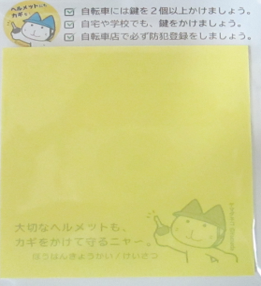 ヘルメットも
カギも
自転車には鍵を２個以上かけましょう。
自宅や学校でも、鍵をかけましょう。
自転車店で必ず防犯登録をしましょう。
大切なヘルメットも、
カギをかけて守るニャー。
ぼうはんきょうかい／けいさつ